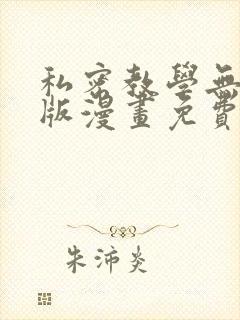 私密教學無
版漫畫免費
朱沛炎